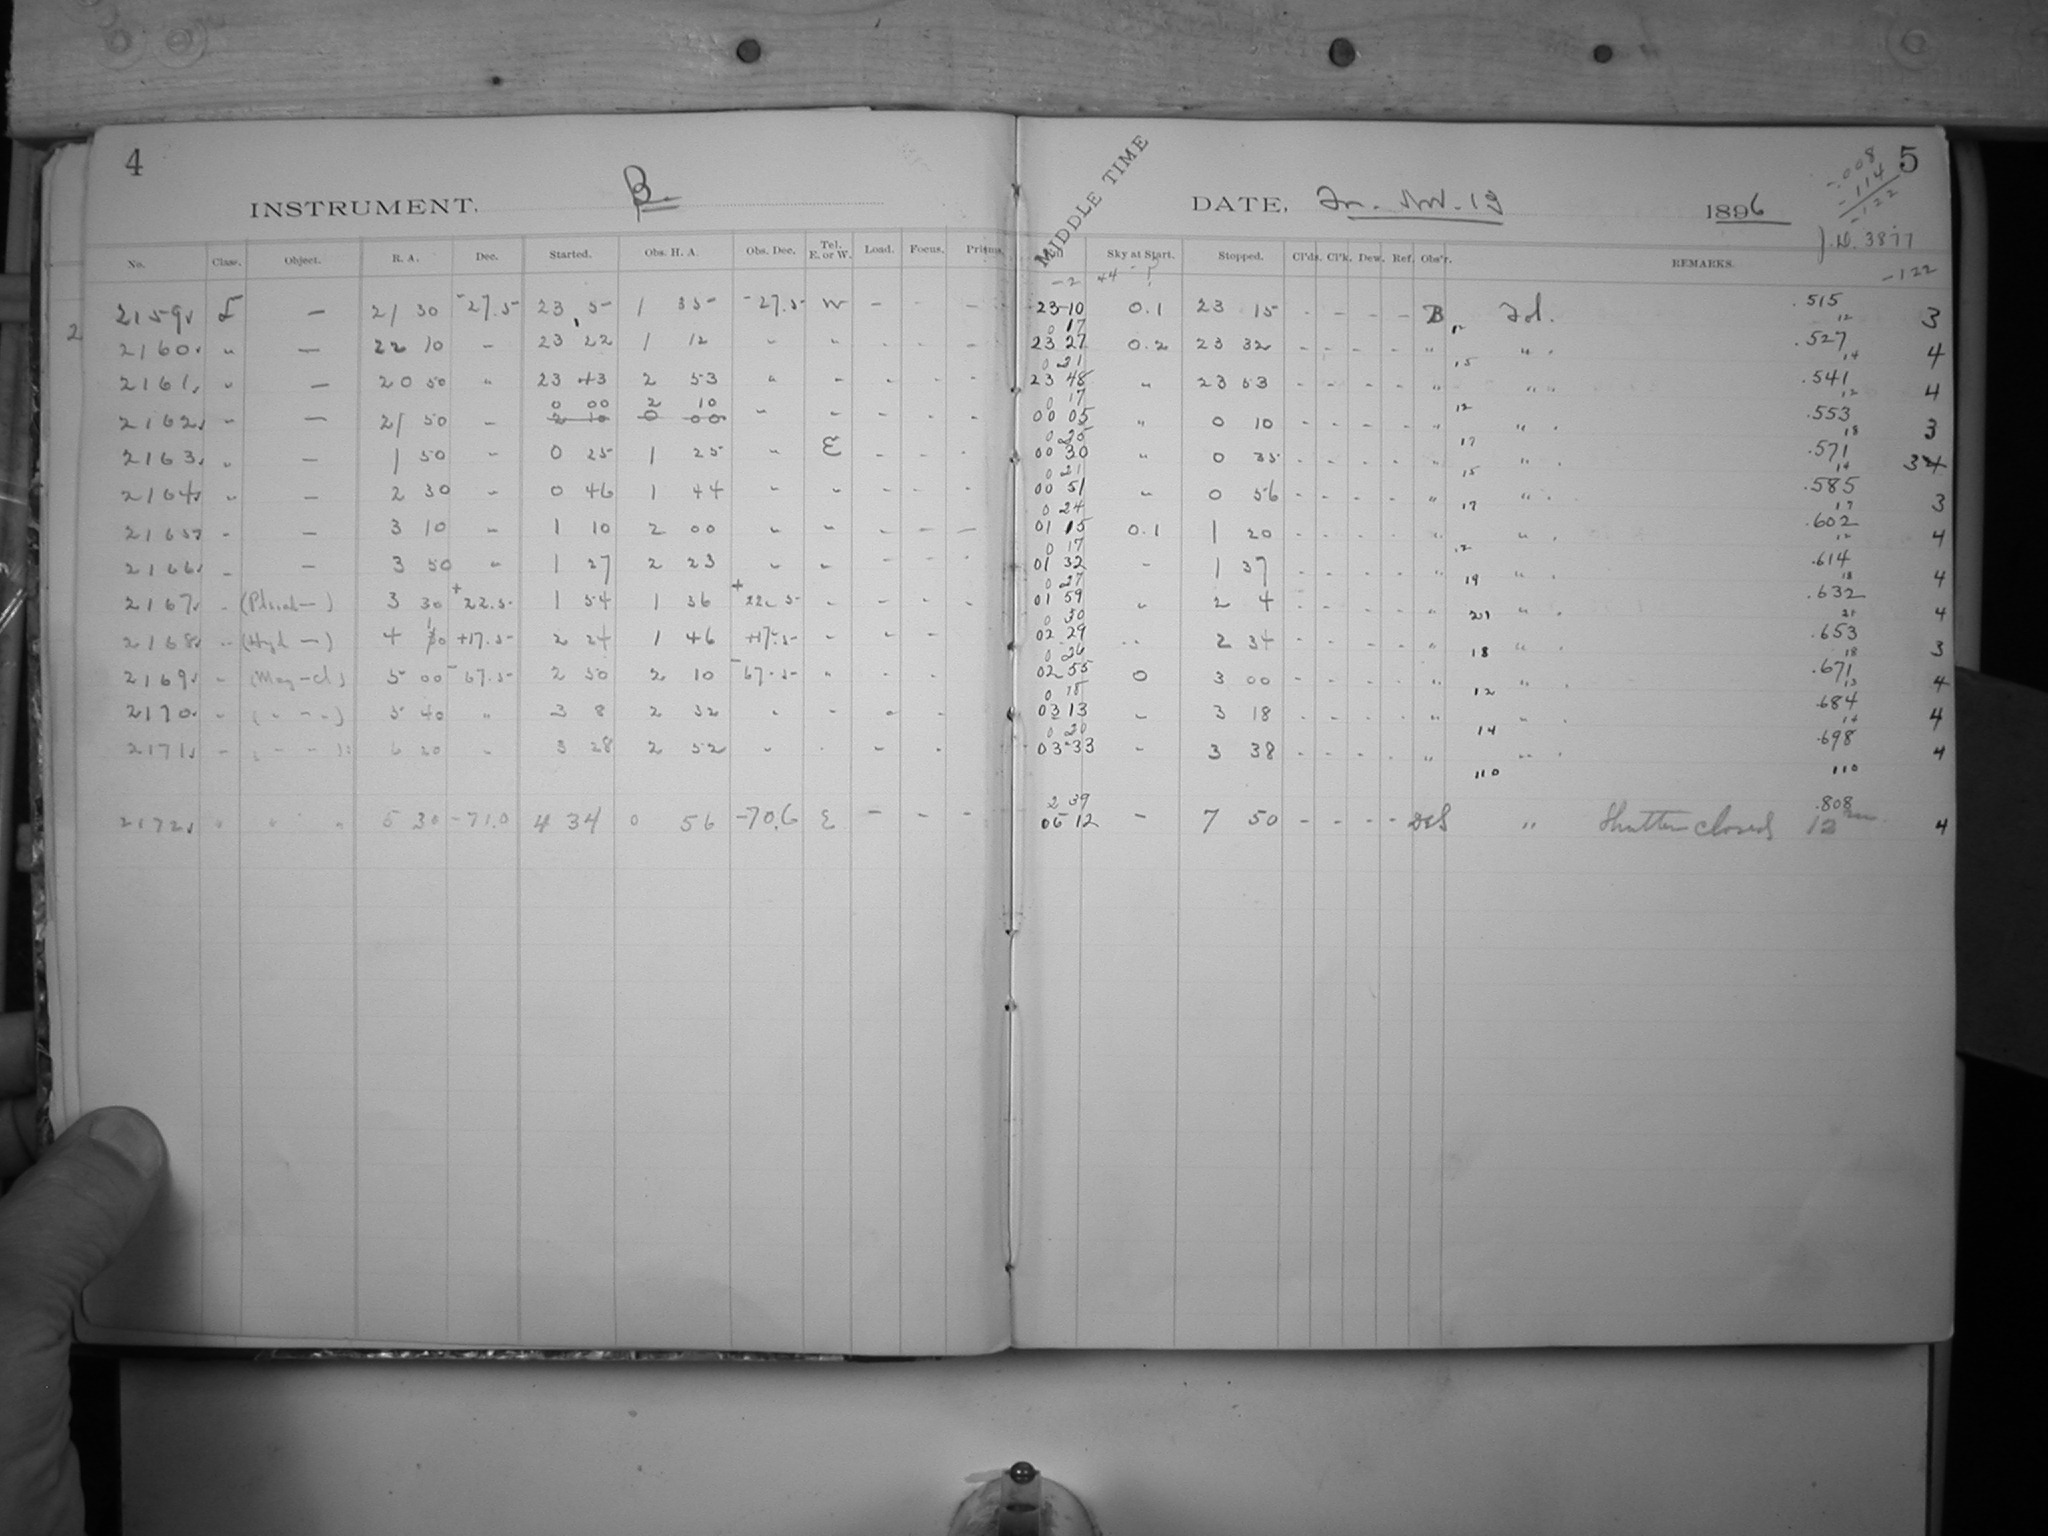 4
INSTRUMENT. B.
No. Class. Object. R. A. Dec. Started. Obs. H. A. Obs. Dec. Tel. E. or W. Load. Focus. Prisms.
2
2159 — 21 30 -27.5 23 5 1 35 -27.5 W - - -
2160 " — 22 10 " 23 22 1 12 " " - - -
2161 " — 20 50 " 23 43 2 53 " - - - -
0 00 2 10
2162 " — 21 50 " 2 10 0 00 " - - - -
2163 " — 1 50 " 0 25 1 25 " E - - -
2164 " — 2 30 " 0 46 1 44 " " - - -
2165 " — 3 10 " 1 10 2 00 " " - - -
2166 " — 3 50 " 1 27 2 23 " " - - -
2167 " 3 30 +22.5 1 54 1 36 +22.5 " - - -
2168 " 4 10 +17.5 2 24 1 46 +17.5 " - -
2169 " 5 00 -67.5 2 50 2 10 -67.5 " - -
2170 " 5 40 " 3 8 2 32 " " " - -
2171 " 6 20 " 3 28 2 52 " - " -
2172 " " " 5 30 -71.0 4 34 0 56 -70.6 E - - -
5
MIDDLE TIME
DATE, Nov. 13 1896
-.008
-.114
-.122
J.D. 3877
Sky at Start. Stopped. Cl'ds. Cl'k. Dew. Ref. Obs'r. REMARKS.
-2 44 -122
23 10 0.1 23 15 - - - - B Fd. .515 3
0 17 12 12
23 27 0.2 23 32 - - - - " " .527 4
0 21 15 14
23 48 " 23 53 - - - - " " .541 4
0 17 12 12
00 05 " 0 10 - - - - " " .553 3
0 25 17 18
00 30 " 0 35 - - - - " " .571 34
0 21 15 14
00 51 " 0 56 - - - - " " .585 3
0 24 17 17
01 15 0.1 1 20 - - - - " " .602 4
0 17 12 12
01 32 - 1 37 - - - - " " .614 4
0 27 19 18
01 59 " 2 4 - - - - " " .632 4
0 30 21 21
02 29 " 2 34 - - - - " " .653 3
0 26 18 18
02 55 0 3 00 - - - - " " .671 4
0 18 12 13
03 13 " 3 18 - - - - " " .684 4
0 20 14 14
03 33 " 3 38 - - - - " " .698 4
110 110
2 39 .808
06 12 - 7 50 - - - - DCS " Shutter closed 12 m. 4